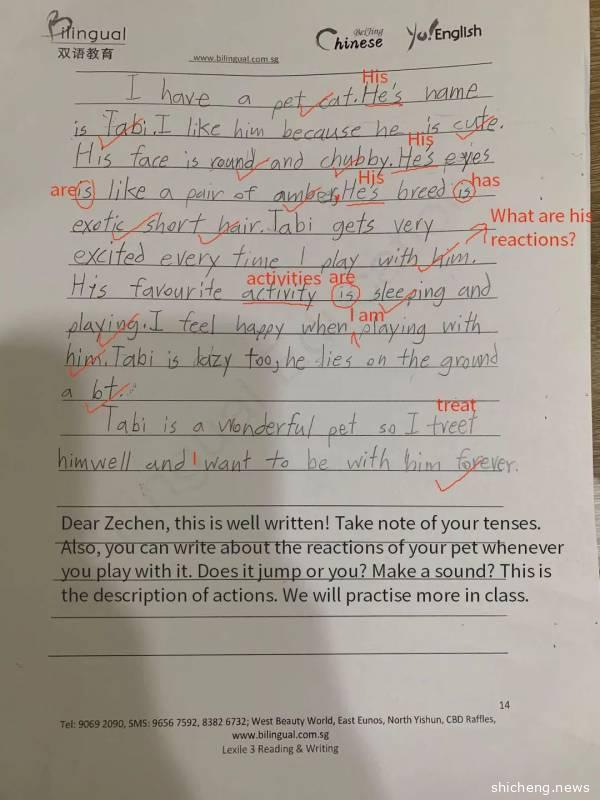 Bilingual
双语教育
BeiJing
Chinese
Yo!English
www.bilingual.com.sg
His
I have a pet cat. He's name
is Tabi. I like him because he is cute.
His
His face is round and chubby. He's eyes
are His has
is like a pair of amber, He's breed is
What are his
exotic short hair. Tabi gets very
reactions?
excited every time I play with him.
activities are
His favourite activity is sleeping and
I am
playing. I feel happy when playing with
him. Tabi is lazy too, he lies on the ground
a bt.
treat
Tabi is a wonderful pet so I treet
him well and I want to be with him forever.
Dear Zechen, this is well written! Take note of your tenses.
Also, you can write about the reactions of your pet whenever
you play with it. Does it jump or you? Make a sound? This is
the description of actions. We will practise more in class.
14
Tel: 9069 2090, SMS: 9656 7592, 8382 6732; West Beauty World, East Eunos, North Yishun, CBD Raffles,
www.bilingual.com.sg
Lexile 3 Reading & Writing
shicheng.news